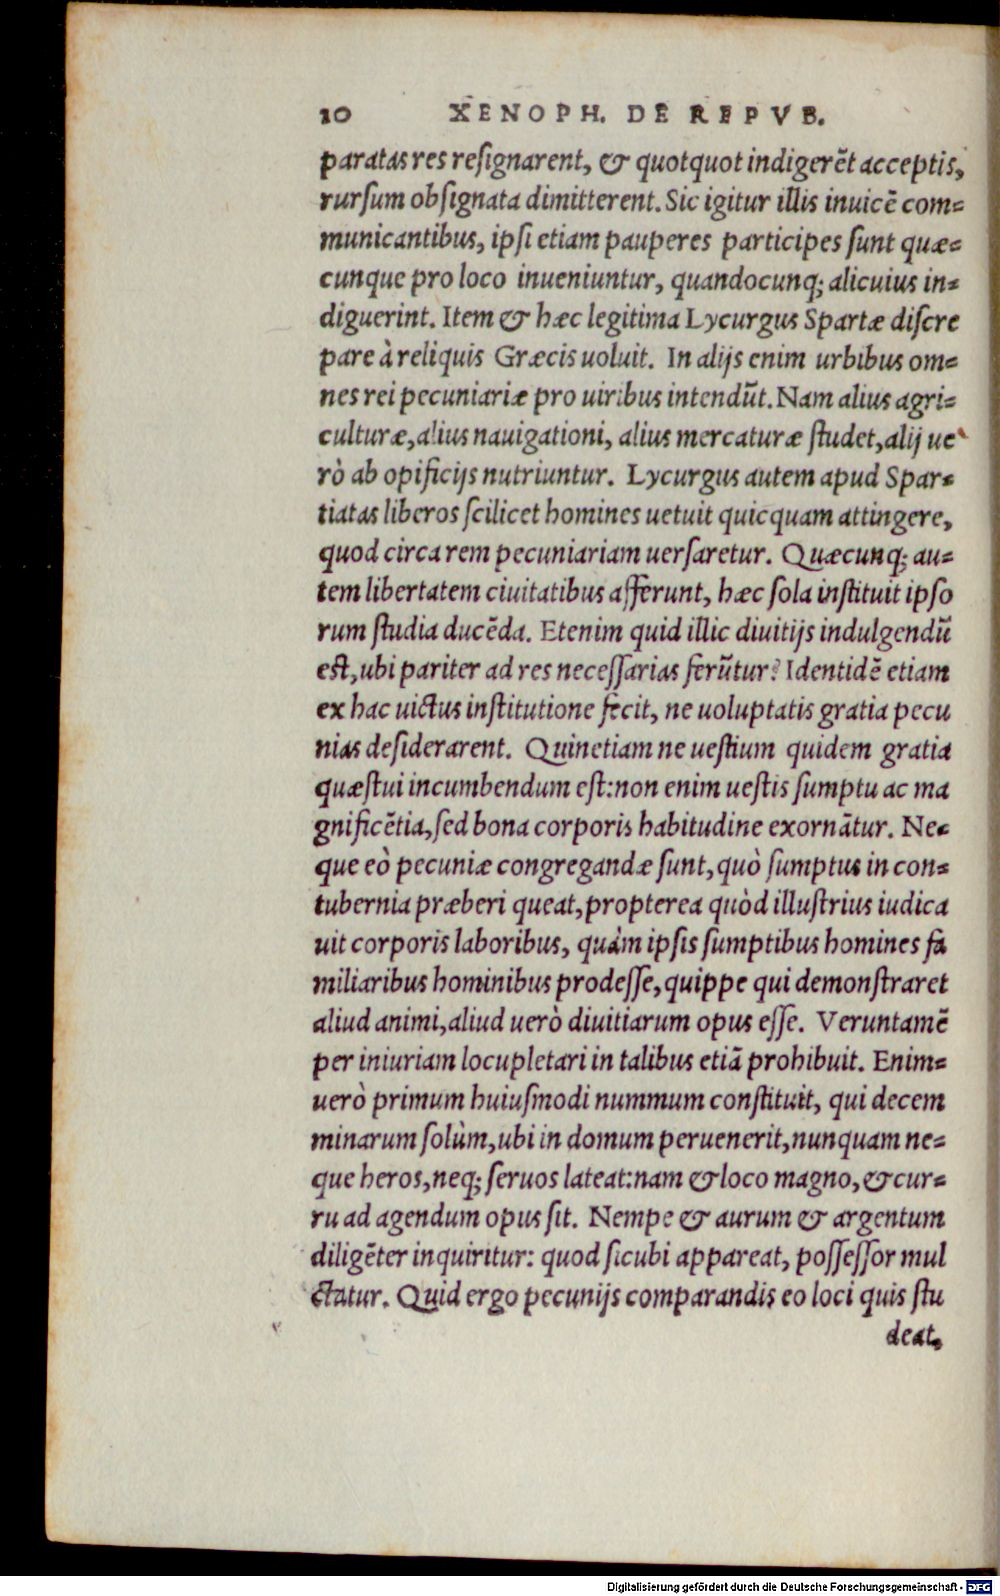 20 XENOPH. DE REPVB.
paratas res resignarent, & quotquot indigerẽt acceptis,
rursum obsignata dimitterent. Sic igitur illis inuicẽ com⸗
municantibus, ipsi etiam pauperes participes sunt quæ⸗
cunque pro loco inueniuntur, quandocunq; alicuius in⸗
diguerint. Item & hæc legitima Lycurgus Spartæ discre
pare à reliquis Græcis uoluit. In alijs enim urbibus om⸗
nes rei pecuniariæ pro uiribus intendũt. Nam alius agri⸗
culturæ, alius nauigationi, alius mercaturæ studet, alij ue
rò ab opificijs nutriuntur. Lycurgus autem apud Spar⸗
tiatas liberos scilicet homines uetuit quicquam attingere,
quod circa rem pecuniariam uersaretur. Quæcunq; au⸗
tem libertatem ciuitatibus afferunt, hæc sola instituit ipso
rum studia ducẽda. Etenim quid illic diuitijs indulgendũ
est, ubi pariter ad res necessarias ferũtur? Identidẽ etiam
ex hac uictus institutione fecit, ne uoluptatis gratia pecu
nias desiderarent. Quinetiam ne uestium quidem gratia
quæstui incumbendum est: non enim uestis sumptu ac ma
gnificẽtia, sed bona corporis habitudine exornãtur. Ne⸗
que eò pecuniæ congregandæ sunt, quò sumptus in con⸗
tubernia præberi queat, propterea quòd illustrius iudica
uit corporis laboribus, quàm ipsis sumptibus homines fa
miliaribus hominibus prodesse, quippe qui demonstraret
aliud animi, aliud uerò diuitiarum opus esse. Veruntamẽ
per iniuriam locupletari in talibus etiã prohibuit. Enim⸗
uerò primum huiusmodi nummum constituit, qui decem
minarum solùm, ubi in domum peruenerit, nunquam ne⸗
que heros, neq; seruos lateat: nam & loco magno, & cur⸗
ru ad agendum opus sit. Nempe & aurum & argentum
diligẽter inquiritur: quod sicubi appareat, possessor mul
ctatur. Quid ergo pecunijs comparandis eo loci quis stu
deat,
Digitalisierung gefördert durch die Deutsche Forschungsgemeinschaft - DFG